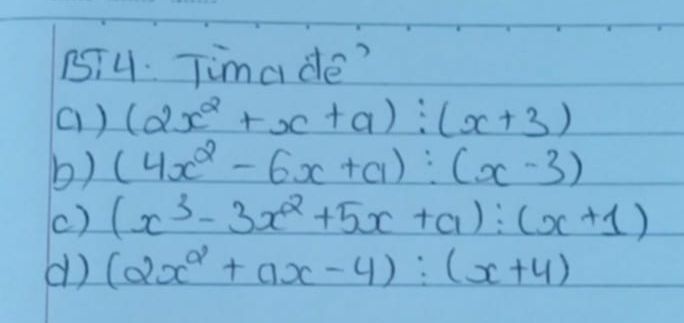 BT4. Tìm a để
a) (2x² + x + a) ⋮ (x + 3)
b) (4x² - 6x + a) ⋮ (x - 3)
c) (x³ - 3x² + 5x + a) ⋮ (x + 1)
d) (2x² + ax - 4) ⋮ (x + 4)